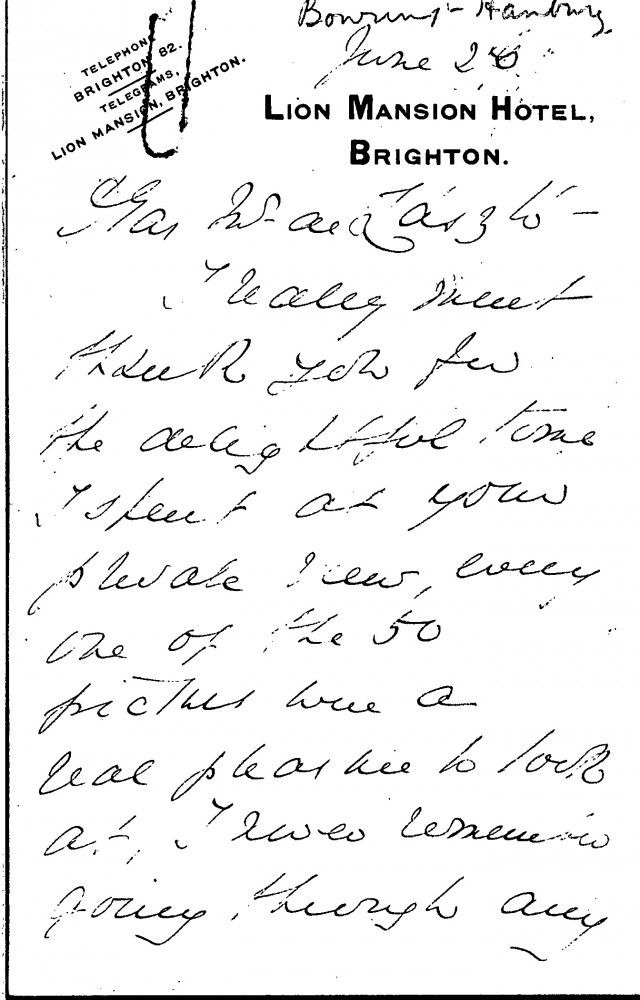 Bowring-Hanbury
June 26
TELEPHONE
BRIGHTON 82.
TELEGRAMS,
LION MANSION, BRIGHTON.
LION MANSION HOTEL,
BRIGHTON.
Dear Mr de László –
I really must
thank you for
the delightful time
I spent at your
private view, every
one of the 50
pictures were a
real pleasure to look
at, I never remember
going through any